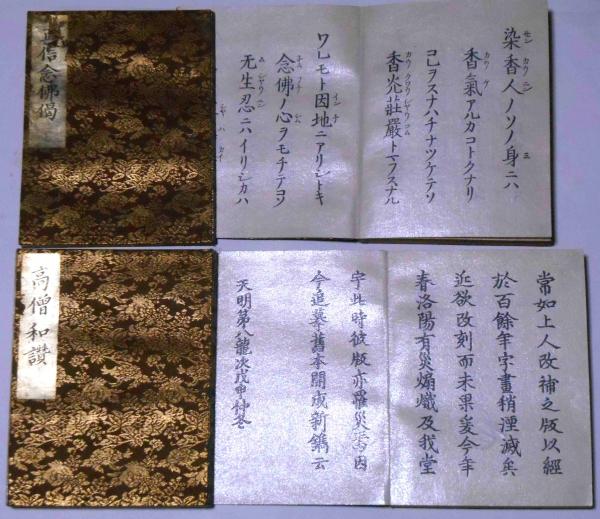 正信念佛偈
染香人ノソノ身ニハ
香氣アルカコトクナリ
コレヲスナハチナツケテソ
香光莊嚴トマフスナル
ワレモト因地ニアリシトキ
念佛ノ心ヲモチテコソ
无生忍ニハイリシカハ
高僧和讃
常如上人改補之版以經
於百餘年字畫稍湮滅矣
近欲改刻而未果爰今年
春洛陽有災煽熾及我堂
宇此時彼版亦罹災 因
今追摹舊本開成新鐫云
天明第八龍次戊申仲冬